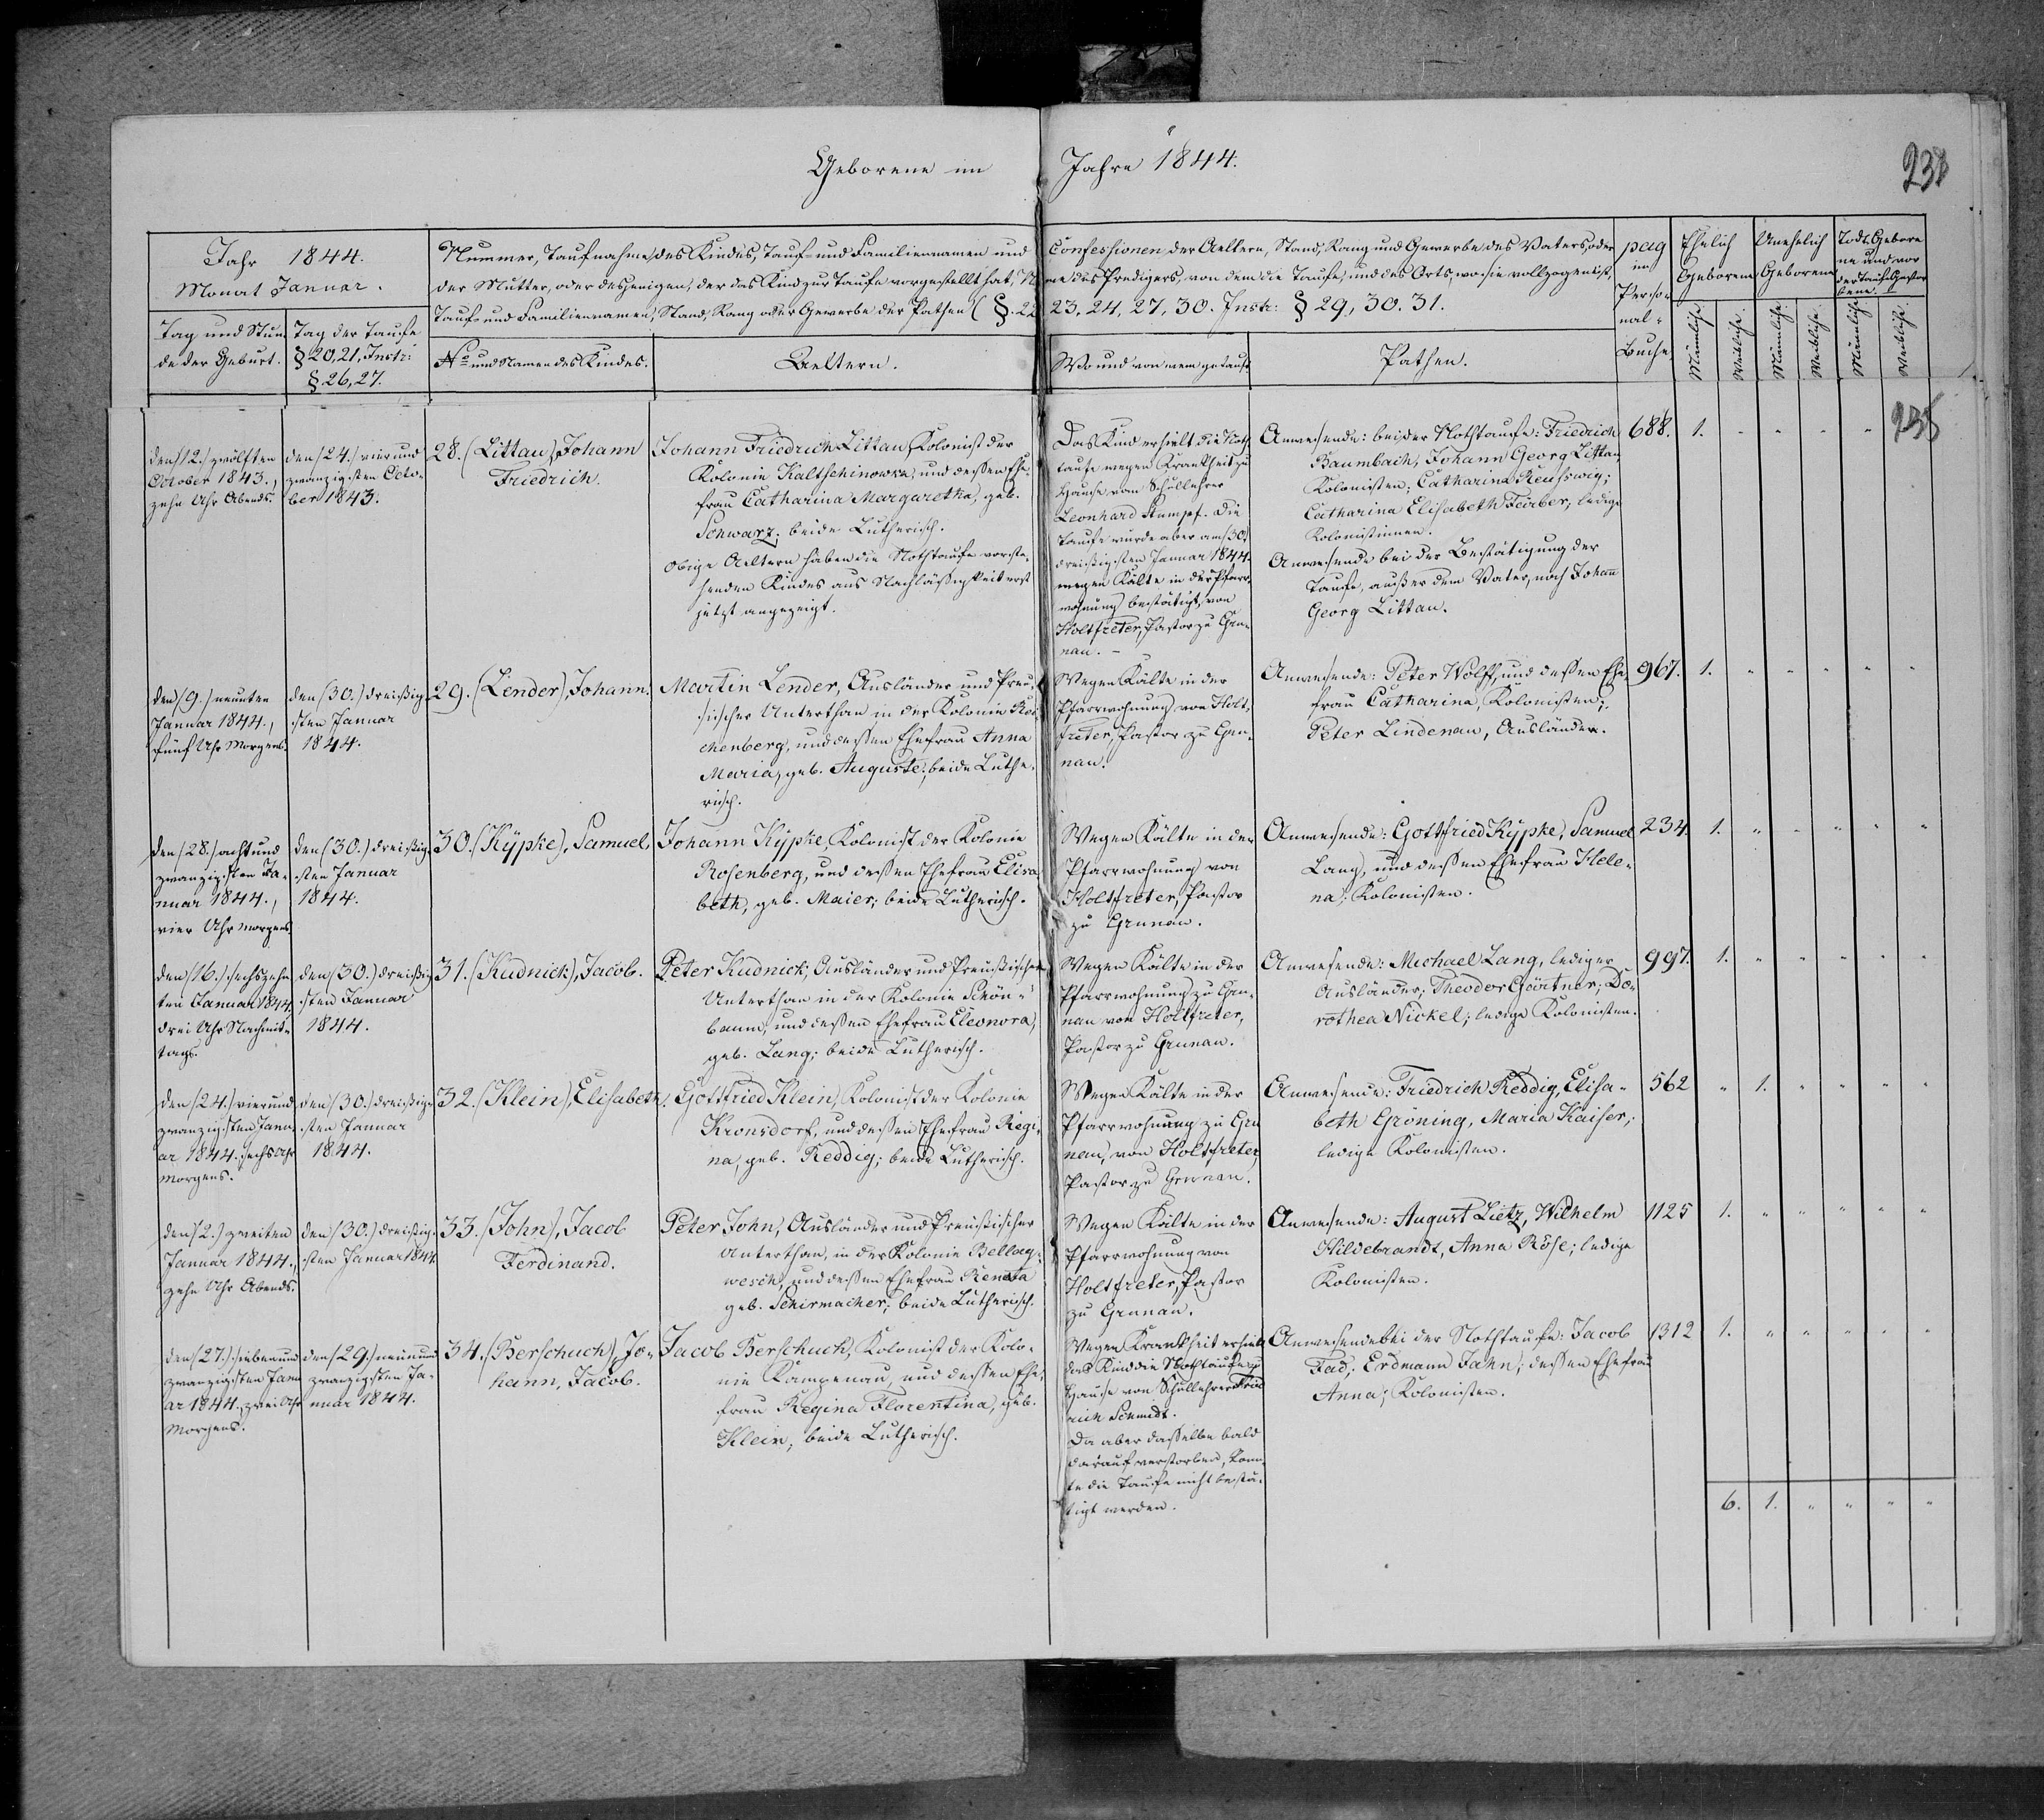 Geborene im Jahre 1844.
238
Jahr 1844.
Monat Januar.
Tag und Stun-
de der Geburt.
Tag der Taufe
§ 20, 21, Instr:
§ 26, 27.
Nummer, Taufnahme des Kindes, Tauf- und Familiennamen und Confessionen der Aeltern, Stand, Rang und Gewerbe des Vaters, oder
der Mutter, oder desjenigen, der das Kind zur Taufe vorgestellt hat, Na me des Predigers, von dem die Taufe, und des Orts, wo sie vollzogen ist,
Tauf- und Familiennamen, Stand, Rang oder Gewerbe der Pathen (§. 22 23, 24, 27, 30. Instr: § 29, 30. 31.
No und Namen des Kindes.
Aeltern.
Wo und von wem getauft
Pathen.
pag
im
Perso-
nal-
Buche
Ehelich
Geborene
Unehelich
Geborene
Todt. Gebore
ne und vor
der Taufe Gestor
bene.
Männliche.
Weibliche.
Männliche.
Weibliche.
Männliche.
Weibliche.
238
den (12.) zwölften
October 1843.,
zehn Uhr Abends.
den (24.) vier und
zwanzigsten Octo-
ber 1843.
28. (Littau), Johann
Friedrich.
Johann Friedrich Littau, Kolonist der
Kolonie Kaltschinowka, und dessen Ehe-
frau Catharina Margaretha, geb.
Schwarz; beide Lutherisch.
Obige Aeltern haben die Nothtaufe vorste-
henden Kindes aus Nachläßigkeit erst
jetzt angezeigt.
Das Kind erhielt die Noth
taufe wegen Krankheit zu
Hause vom Schullehrer
Leonhard Stumpf. Die
Taufe wurde aber am (30)
dreißigsten Januar 1844.
wegen Kälte in der Pfarr-
wohnung bestätigt, von
Holtfreter, Pastor zu Gru-
nau. –
Anwesende: bei der Nothtaufe: Friedrich
Baumbach, Johann Georg Littau,
Kolonisten; Catharina Reusswig;
Catharina Elisabeth Färber, ledige
Kolonistinnen.
Anwesende bei der Bestätigung der
Taufe, außer dem Vater, noch Johann
Georg Littau.
688. 1. " " " "
den (9.) neunten
Januar 1844.,
fünf Uhr Morgens.
den (30.) dreißig-
sten Januar
1844.
29. (Lender), Johann.
Martin Lender, Ausländer und Preu-
sischer Unterthan in der Kolonie Rei-
chenberg, und dessen Ehefrau Anna
Maria, geb. Auguste; beide Luthe-
risch.
Wegen Kälte in der
Pfarrwohnung von Holt-
freter, Pastor zu Gru-
nau.
Anwesende: Peter Wolff, und dessen Ehe-
frau Catharina, Kolonisten;
Peter Lindenau, Ausländer.
967. 1. " " " " "
den (28.) acht und
zwanzigsten Ja-
nuar 1844.,
vier Uhr Morgens.
den (30.) dreißig-
sten Januar
1844.
30. (Kypke), Samuel,
Johann Kypke, Kolonist der Kolonie
Rosenberg, und dessen Ehefrau Elisa-
beth, geb. Maier; beide Lutherisch.
Wegen Kälte in der
Pfarrwohnung von
Holtfreter, Pastor
zu Grunau.
Anwesende: Gottfried Kypke, Samuel
Lang, und dessen Ehefrau Hele-
na; Kolonisten.
234. 1. " " " " "
den (16.) sechszehn
ten Januar 1844,
drei Uhr Nachmit-
tags.
den (30.) dreißig-
sten Januar
1844.
31. (Kudnick), Jacob.
Peter Kudnick, Ausländer und Preußischer
Unterthan in der Kolonie Schön-
baum, und dessen Ehefrau Eleonora,
geb. Lang; beide Lutherisch.
Wegen Kälte in der
Pfarrwohnung zu Gru-
nau von Holtfreter,
Pastor zu Grunau.
Anwesende: Michael Lang, lediger
Ausländer; Theodor Gärtner; Do-
rothea Nickel; ledige Kolonisten.
997. 1. " " " " "
den (24.) vier und
zwanzigsten Janu-
ar 1844., sechs Uhr
Morgens.
den (30.) dreißig-
sten Januar
1844.
32. (Klein), Elisabeth.
Gottfried Klein, Kolonist der Kolonie
Kronsdorf, und dessen Ehefrau Regi-
na, geb. Reddig; beide Lutherisch.
Wegen Kälte in der
Pfarrwohnung zu Gru
nau, von Holtfreter,
Pastor zu Grunau.
Anwesende: Friedrich Reddig, Elisa-
beth Gröning, Maria Kaiser;
ledige Kolonisten.
562 " 1. " " " "
den (2.) zweiten
Januar 1844.,
zehn Uhr Abends.
den (30.) dreißig-
sten Januar 1844.
33. (John), Jacob
Ferdinand.
Peter John, Ausländer und Preußischer
Unterthan, in der Kolonie Bellag-
wesch, und dessen Ehefrau Renata
geb. Schirmacher; beide Lutherisch.
Wegen Kälte in der
Pfarrwohnung von
Holtfreter, Pastor
zu Grunau.
Anwesende: August Lietz, Wilhelm
Hildebrandt, Anna Röse; ledige
Kolonisten.
1125 1. " " " " "
den (27.) sieben und
zwanzigsten Janu
ar 1844., zwei Uhr
Morgens.
den (29.) neun und
zwanzigsten Ja-
nuar 1844.
34. (Berschuch), Jo-
hann, Jacob.
Jacob Berschuch, Kolonist der Kolo-
nie Kampenau, und dessen Ehe-
frau Regina Florentina, geb.
Klein; beide Lutherisch.
Wegen Krankheit erhielt
das Kind die Nothtaufe zu
Hause von Schullehrer Fried
rich Schmidt.
Da aber dasselbe bald
darauf verstorben, konn-
te die Taufe nicht bestä-
tigt werden.
Anwesende bei der Nothtaufe: Jacob
Fad; Erdmann Jahn; dessen Ehefrau
Anna; Kolonisten.
1312 1. " " " " "
6. 1. " " " "